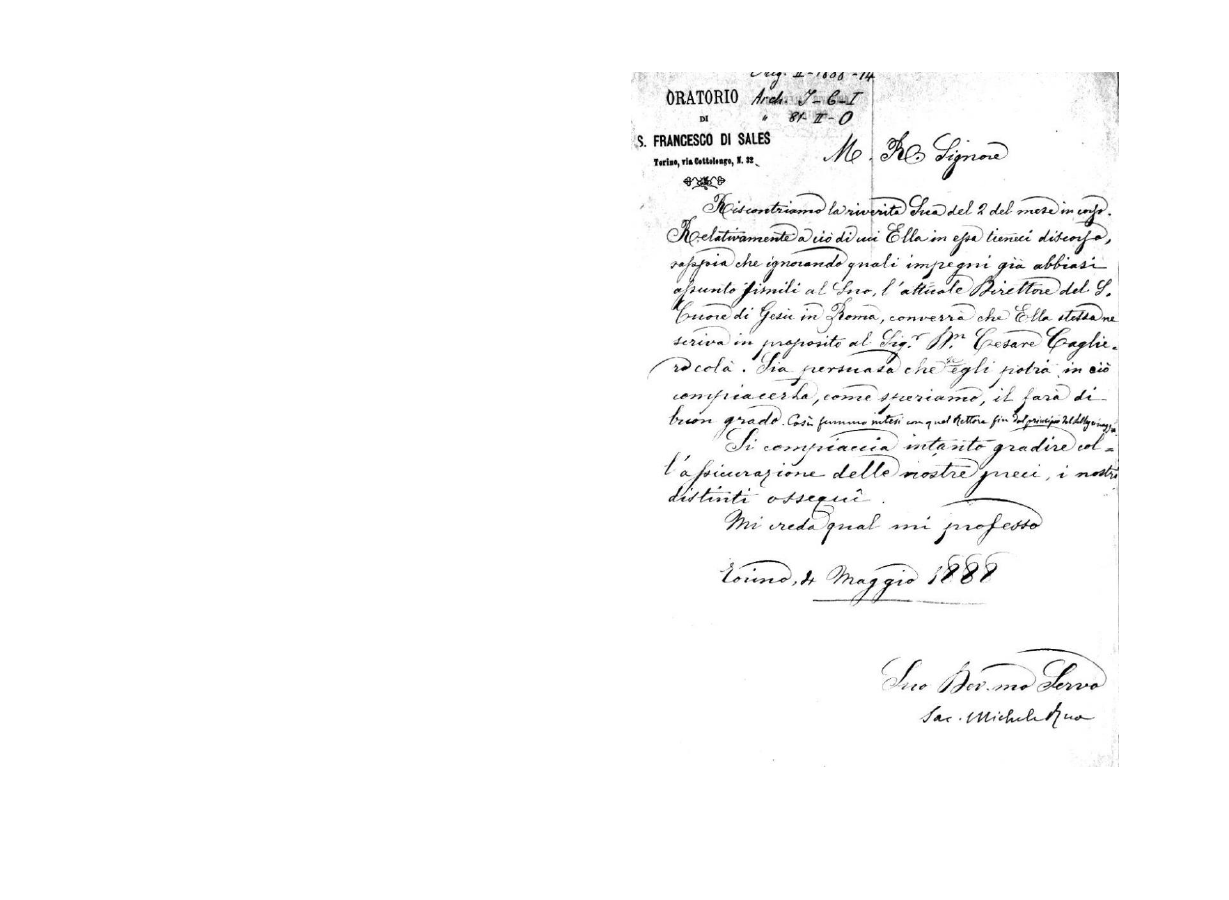 Orig. II-1888-14
ORATORIO
Arch. I-6-I
DI
" 81-II-O
S. FRANCESCO DI SALES
Torino, via Cottolengo, N. 32
M. R. Signore
Riscontriamo la riverita Sua del 2 del mese in corso.
Relativamente a ciò di cui Ella in essa tieneci discorso,
sappia che ignorando quali impegni già abbiasi
assunto simili al Suo, l'attuale Direttore del S.
Cuore di Gesù in Roma, converrà che Ella stessa ne
scriva in proposito al Sig.r D.n Cesare Caglie-
ro colà. Sia persuasa che se egli potrà in ciò
compiacerla, come speriamo, il farà di
buon grado. Così fummo intesi con quel Rettore fin dal principio
Si compiaccia intanto gradire col-
l'assicurazione delle nostre preci, i nostri
distinti ossequi.
Mi creda qual mi professo
Torino, 4 Maggio 1888
Suo Dev.mo Servo
Sac. Michele Rua